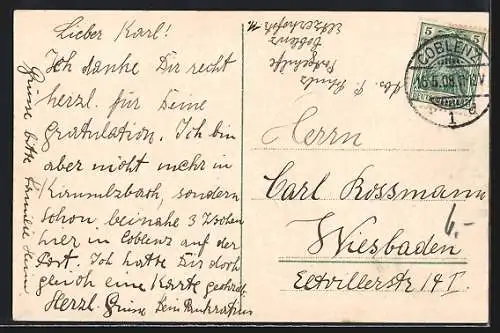 Lieber Karl!
Ich danke Dir recht
herzl. für Deine
Gratulation. Ich bin
aber nicht mehr in
Kirnsulzbach, sondern
schon beinahe 3 Wochen
hier in Coblenz auf der
Post. Ich hatte Dir doch
gleich eine Karte geschickt.
Herzl. Grüsse Dein Pankratius
Grüsse bitte Familie Heim
Abs. P. Schulz
Postgehilfe
Coblenz
5
COBLENZ
16.5.09
1 e
Herrn
Carl Rossmann
Wiesbaden
Eltvillerstr 14 I.
6.-